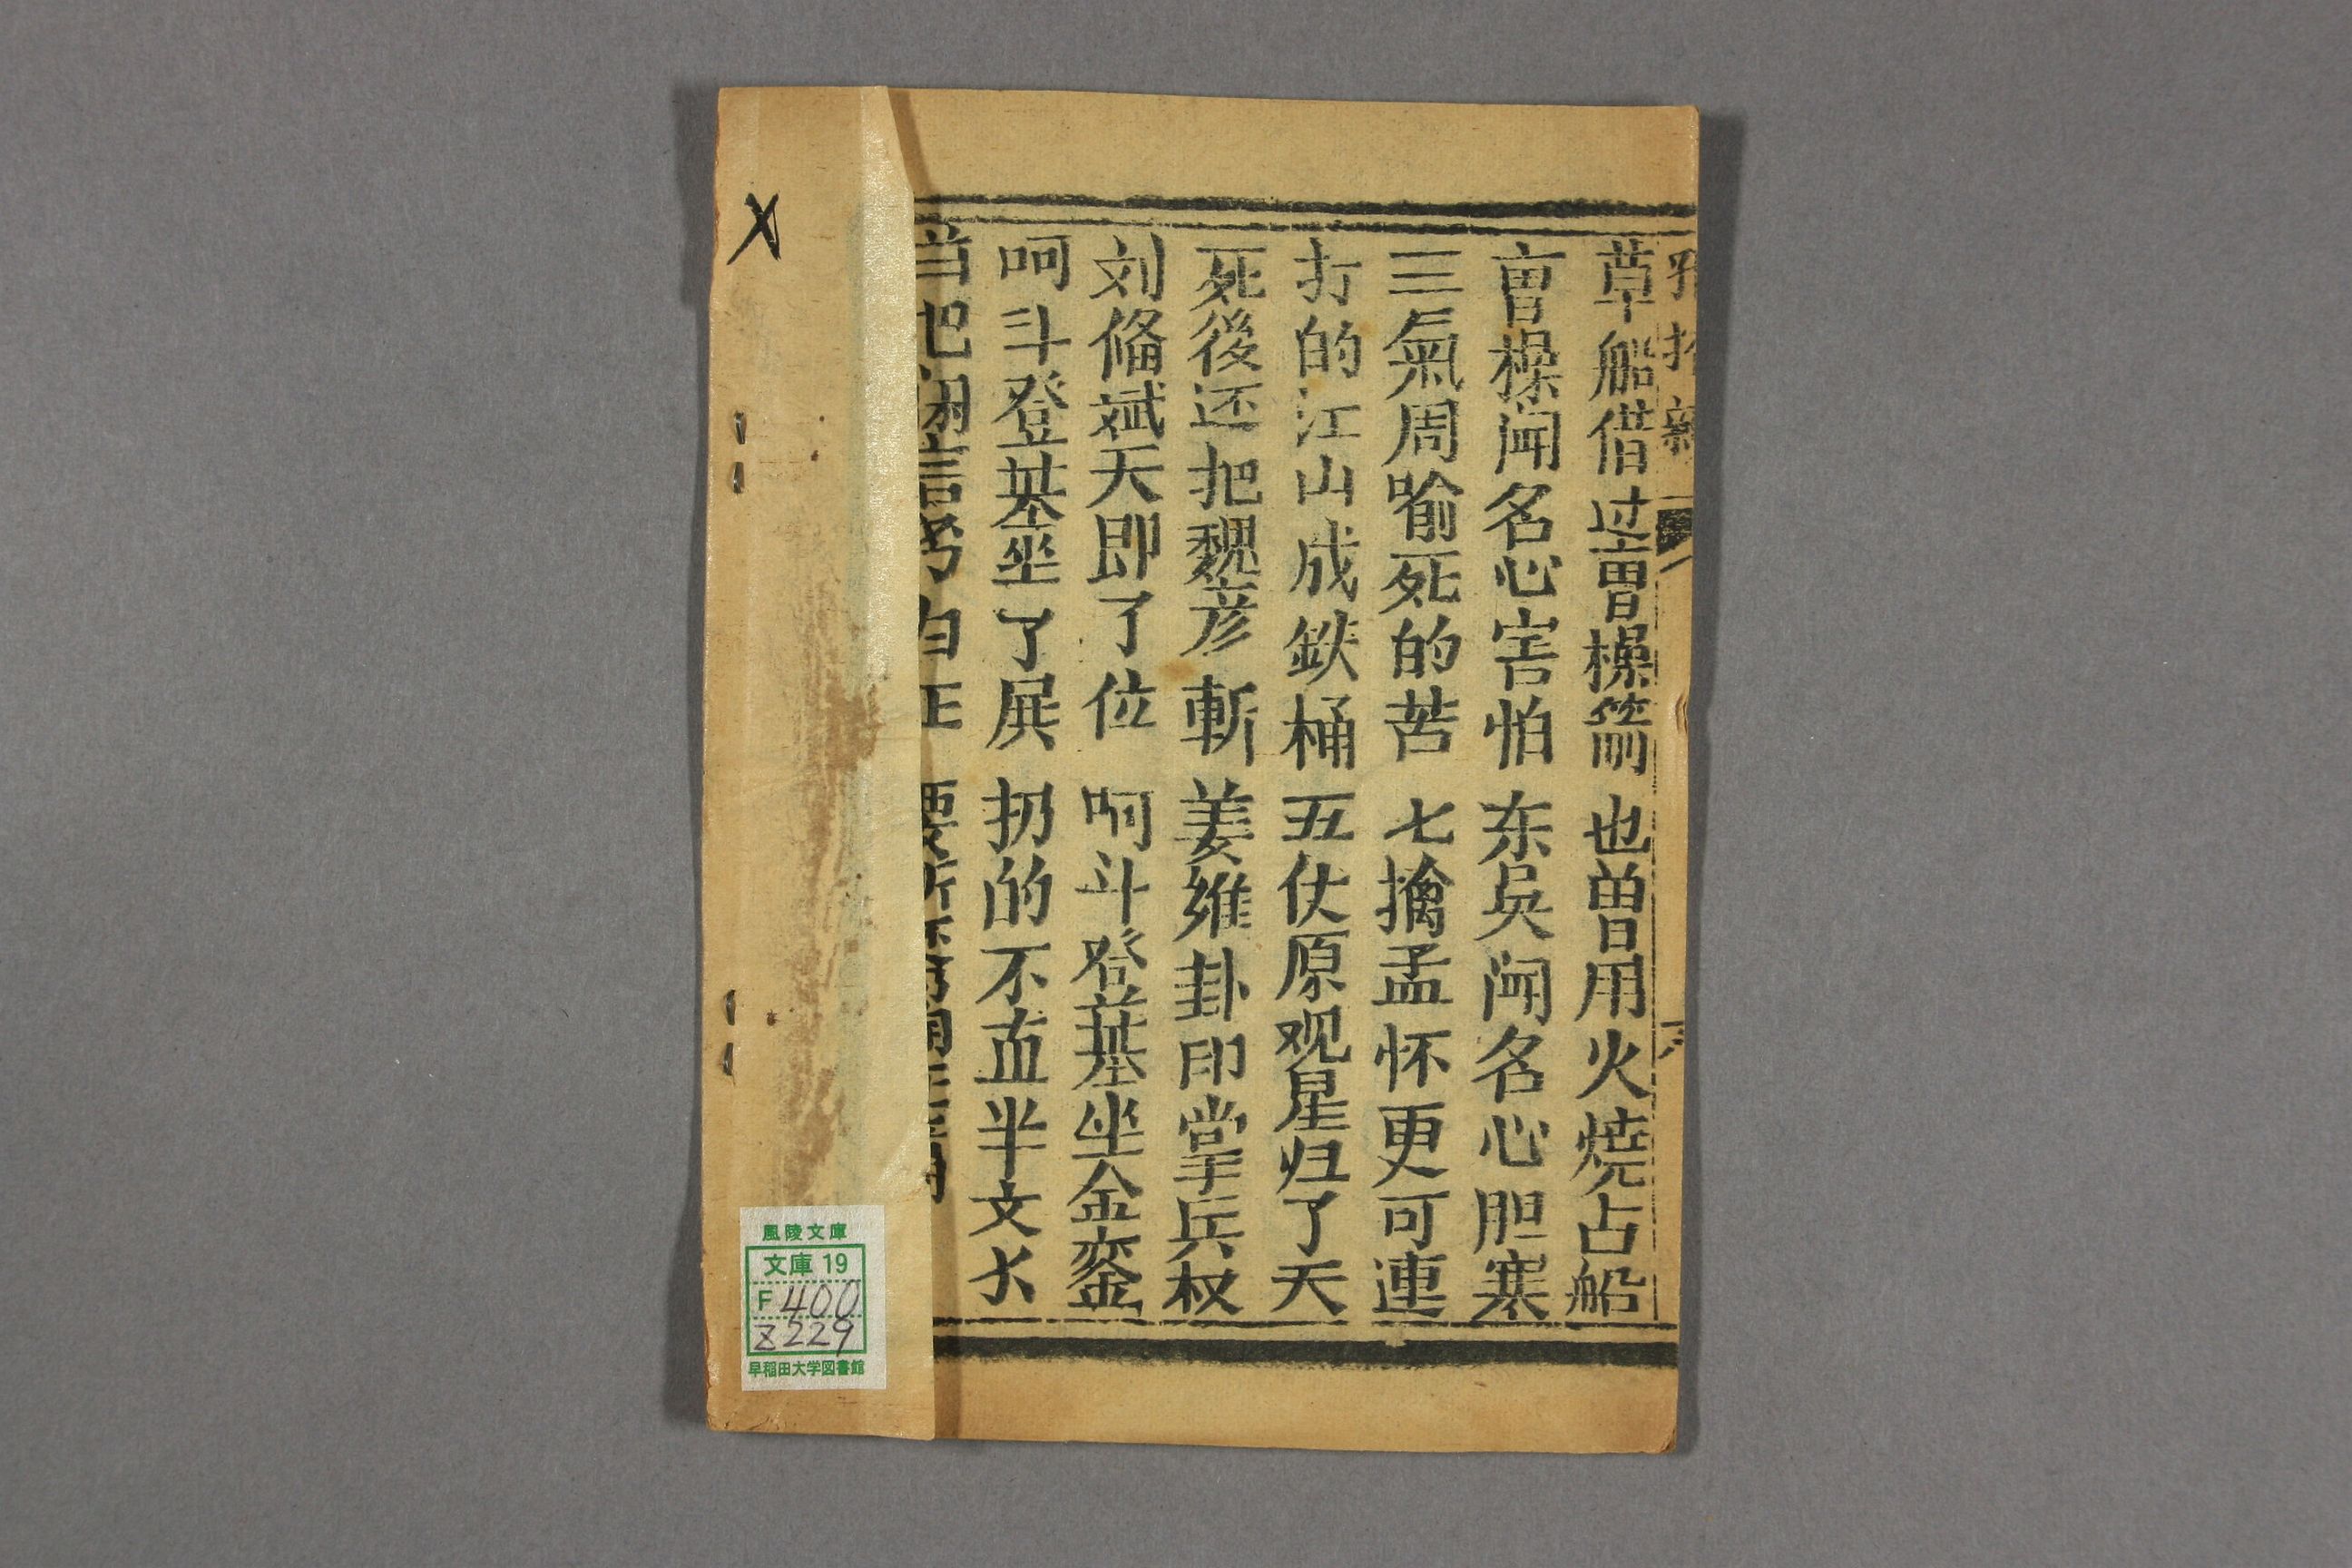 草船借过曹操箭　也曽用火燒占船
曹操闻名心害怕　东吴闻名心胆寒
三氣周喻死的苦　七擒孟怀更可連
打的江山成鉄桶　五仗原观星归了天
死後还把魏彦斬　姜維卦印掌兵权
刘俻斌天即了位　呵斗登基坐金銮
呵斗登基坐了展　扔的不直半文大
X
風陵文庫
文庫 19
F 400
Z229
早稲田大学図書館